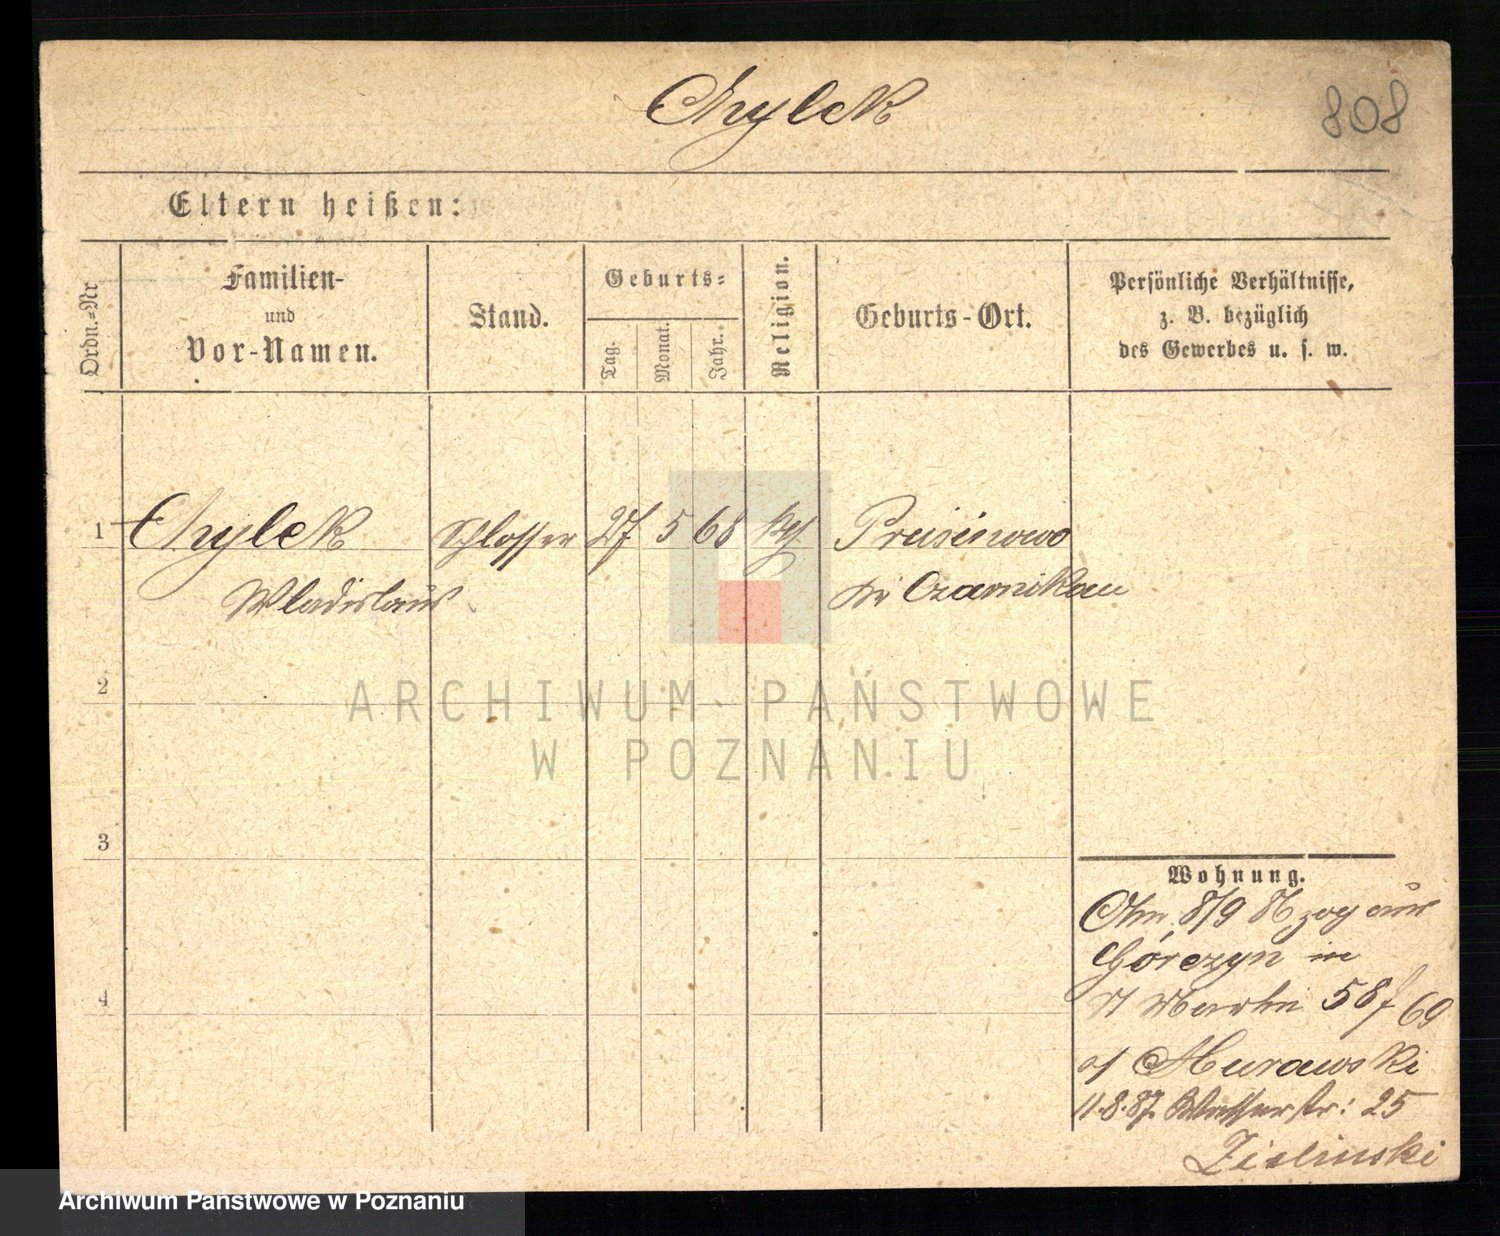 Chylek
808
Eltern heißen:
Ordn.-Nr
Familien-
und
Vor-Namen.
Stand.
Geburts-
Tag.
Monat.
Jahr.
Religion.
Geburts-Ort.
Persönliche Verhältnisse,
z. B. bezüglich
des Gewerbes u. s. w.
1 Chylek Schlosser 27 5 68 kth
Wladislaus
Czarnikau
2
3
4
Wohnung.
8/9 86 zog aus
Górczyn in
St Martin 58 f 69
Murawski
11.8.87. Wasserstr: 25
Zielinski
ARCHIWUM PAŃSTWOWE
W POZNANIU
Archiwum Państwowe w Poznaniu